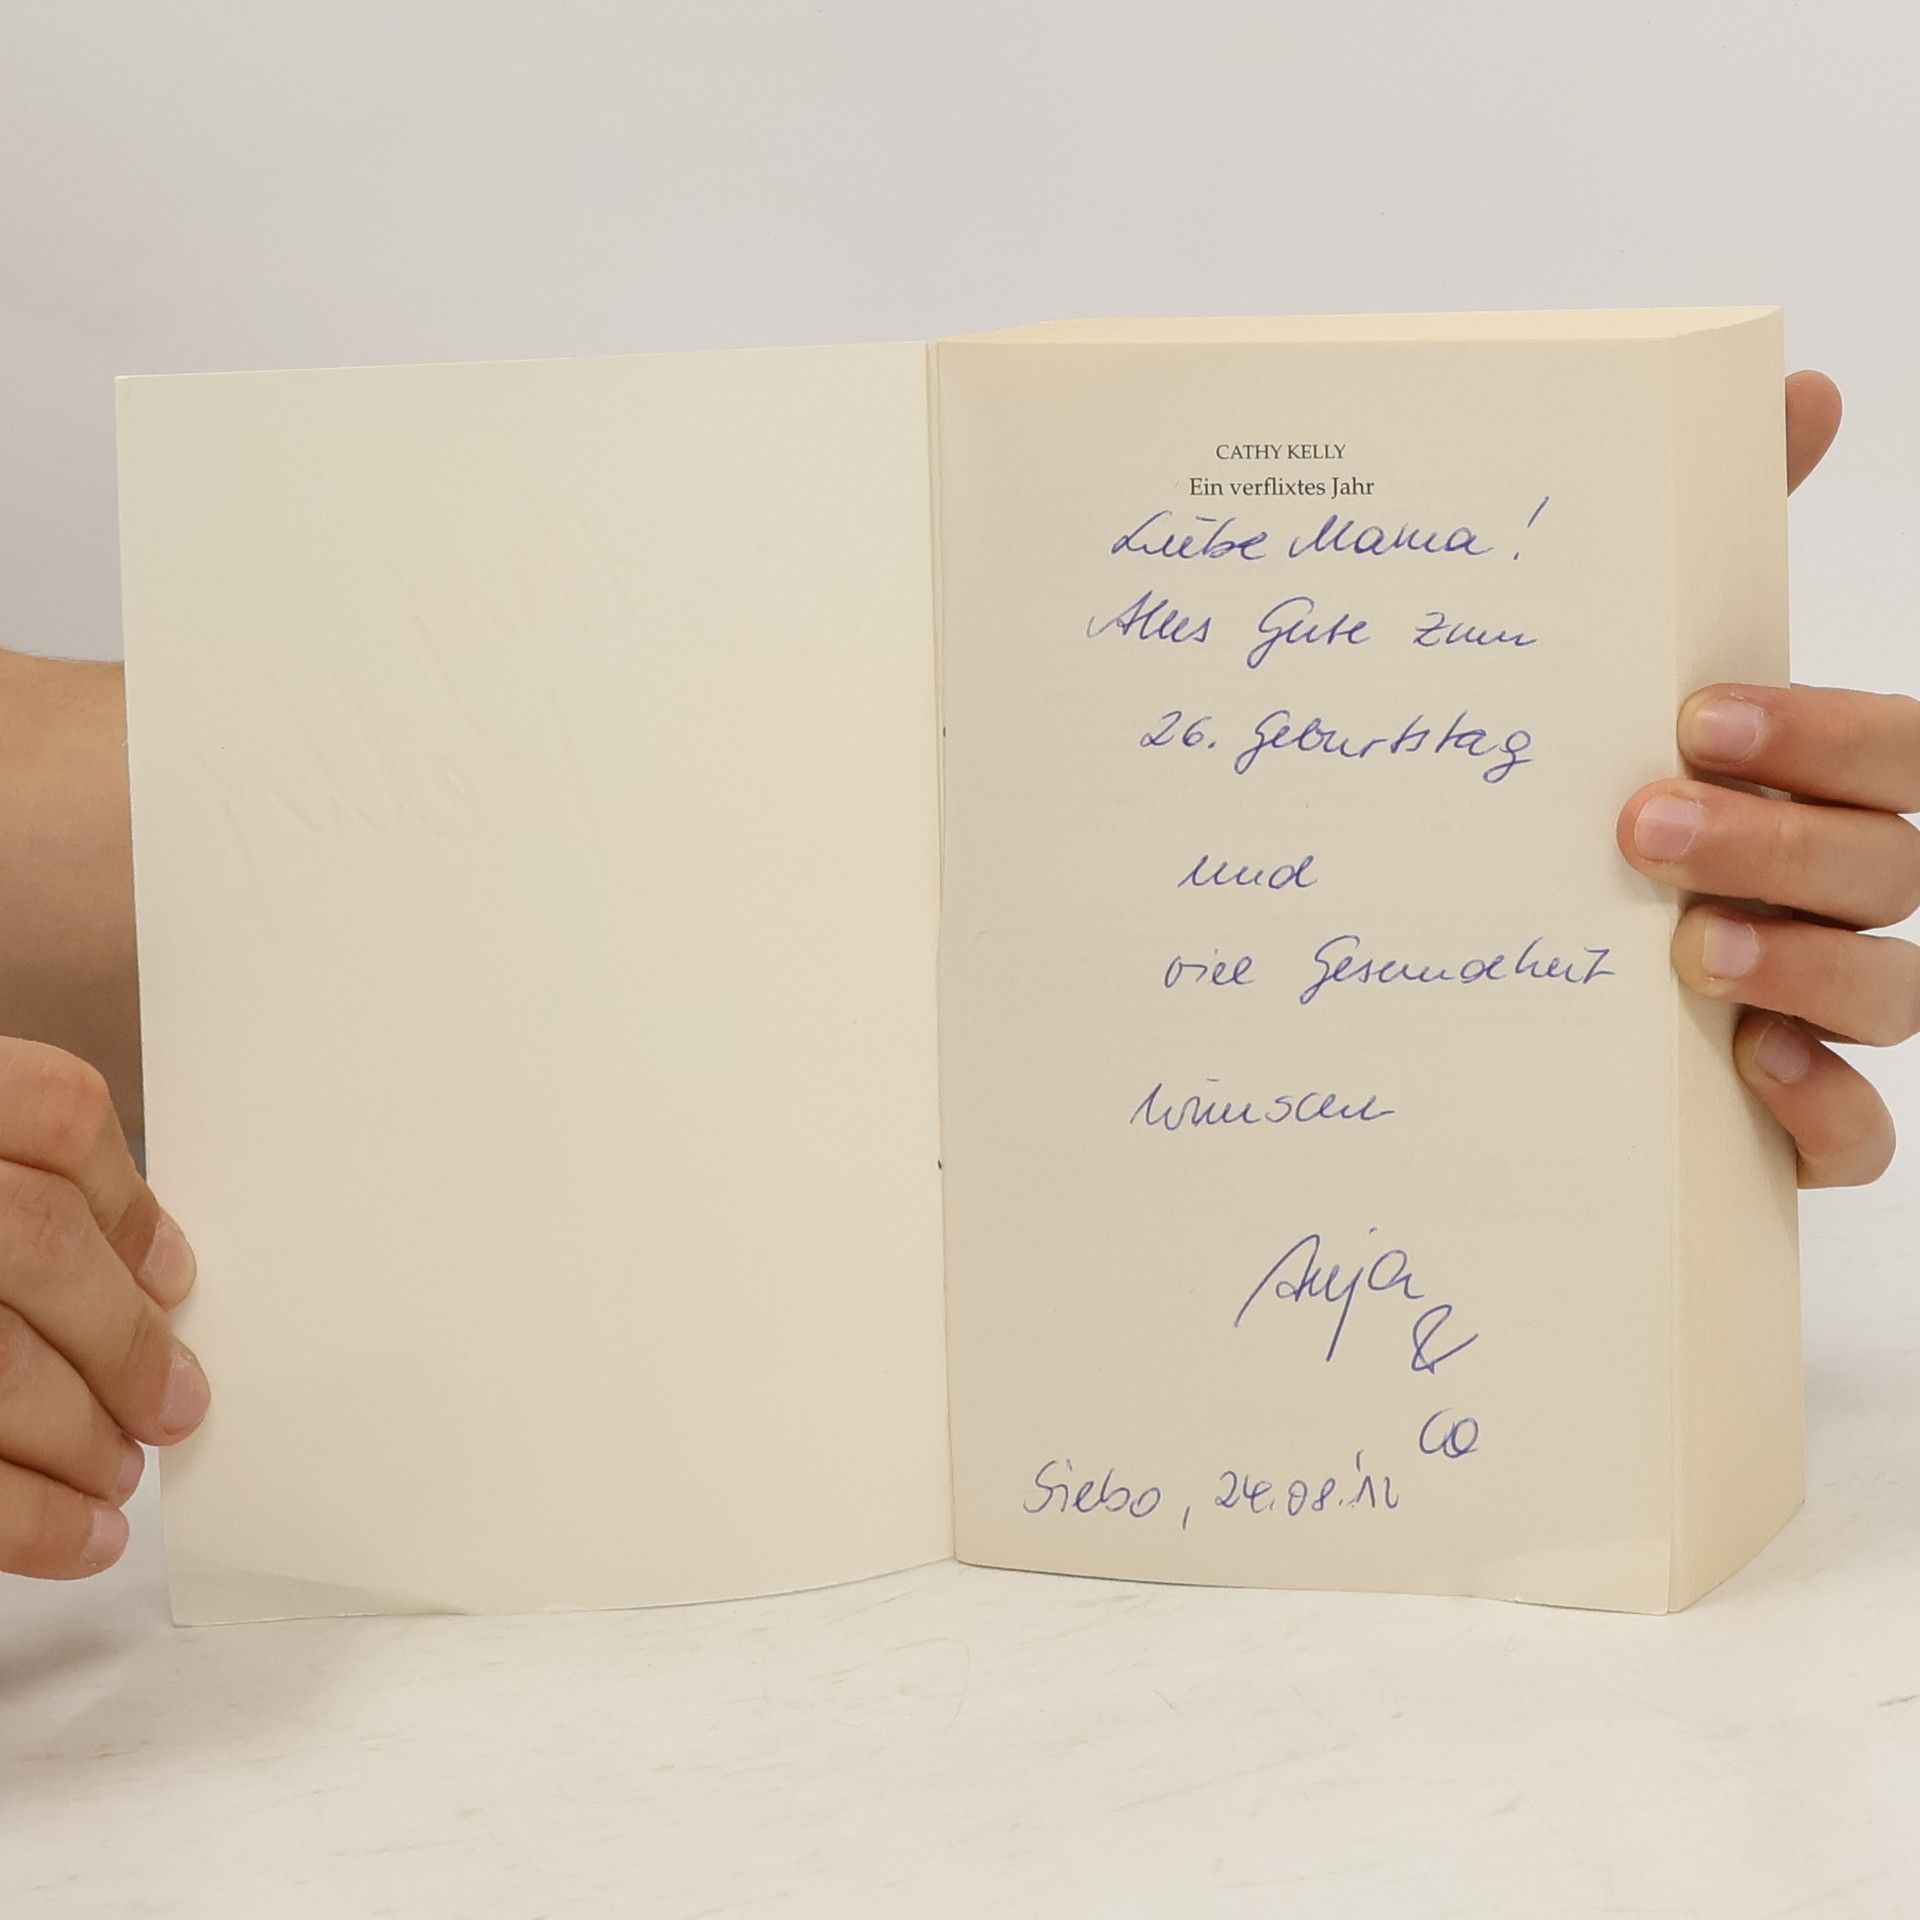 CATHY KELLY
Ein verflixtes Jahr
Liebe Mama!
Alles Gute zum
26. Geburtstag
und
viel Gesundheit
wünschen
Anja
&
Co
Siebo, 24.08.'12